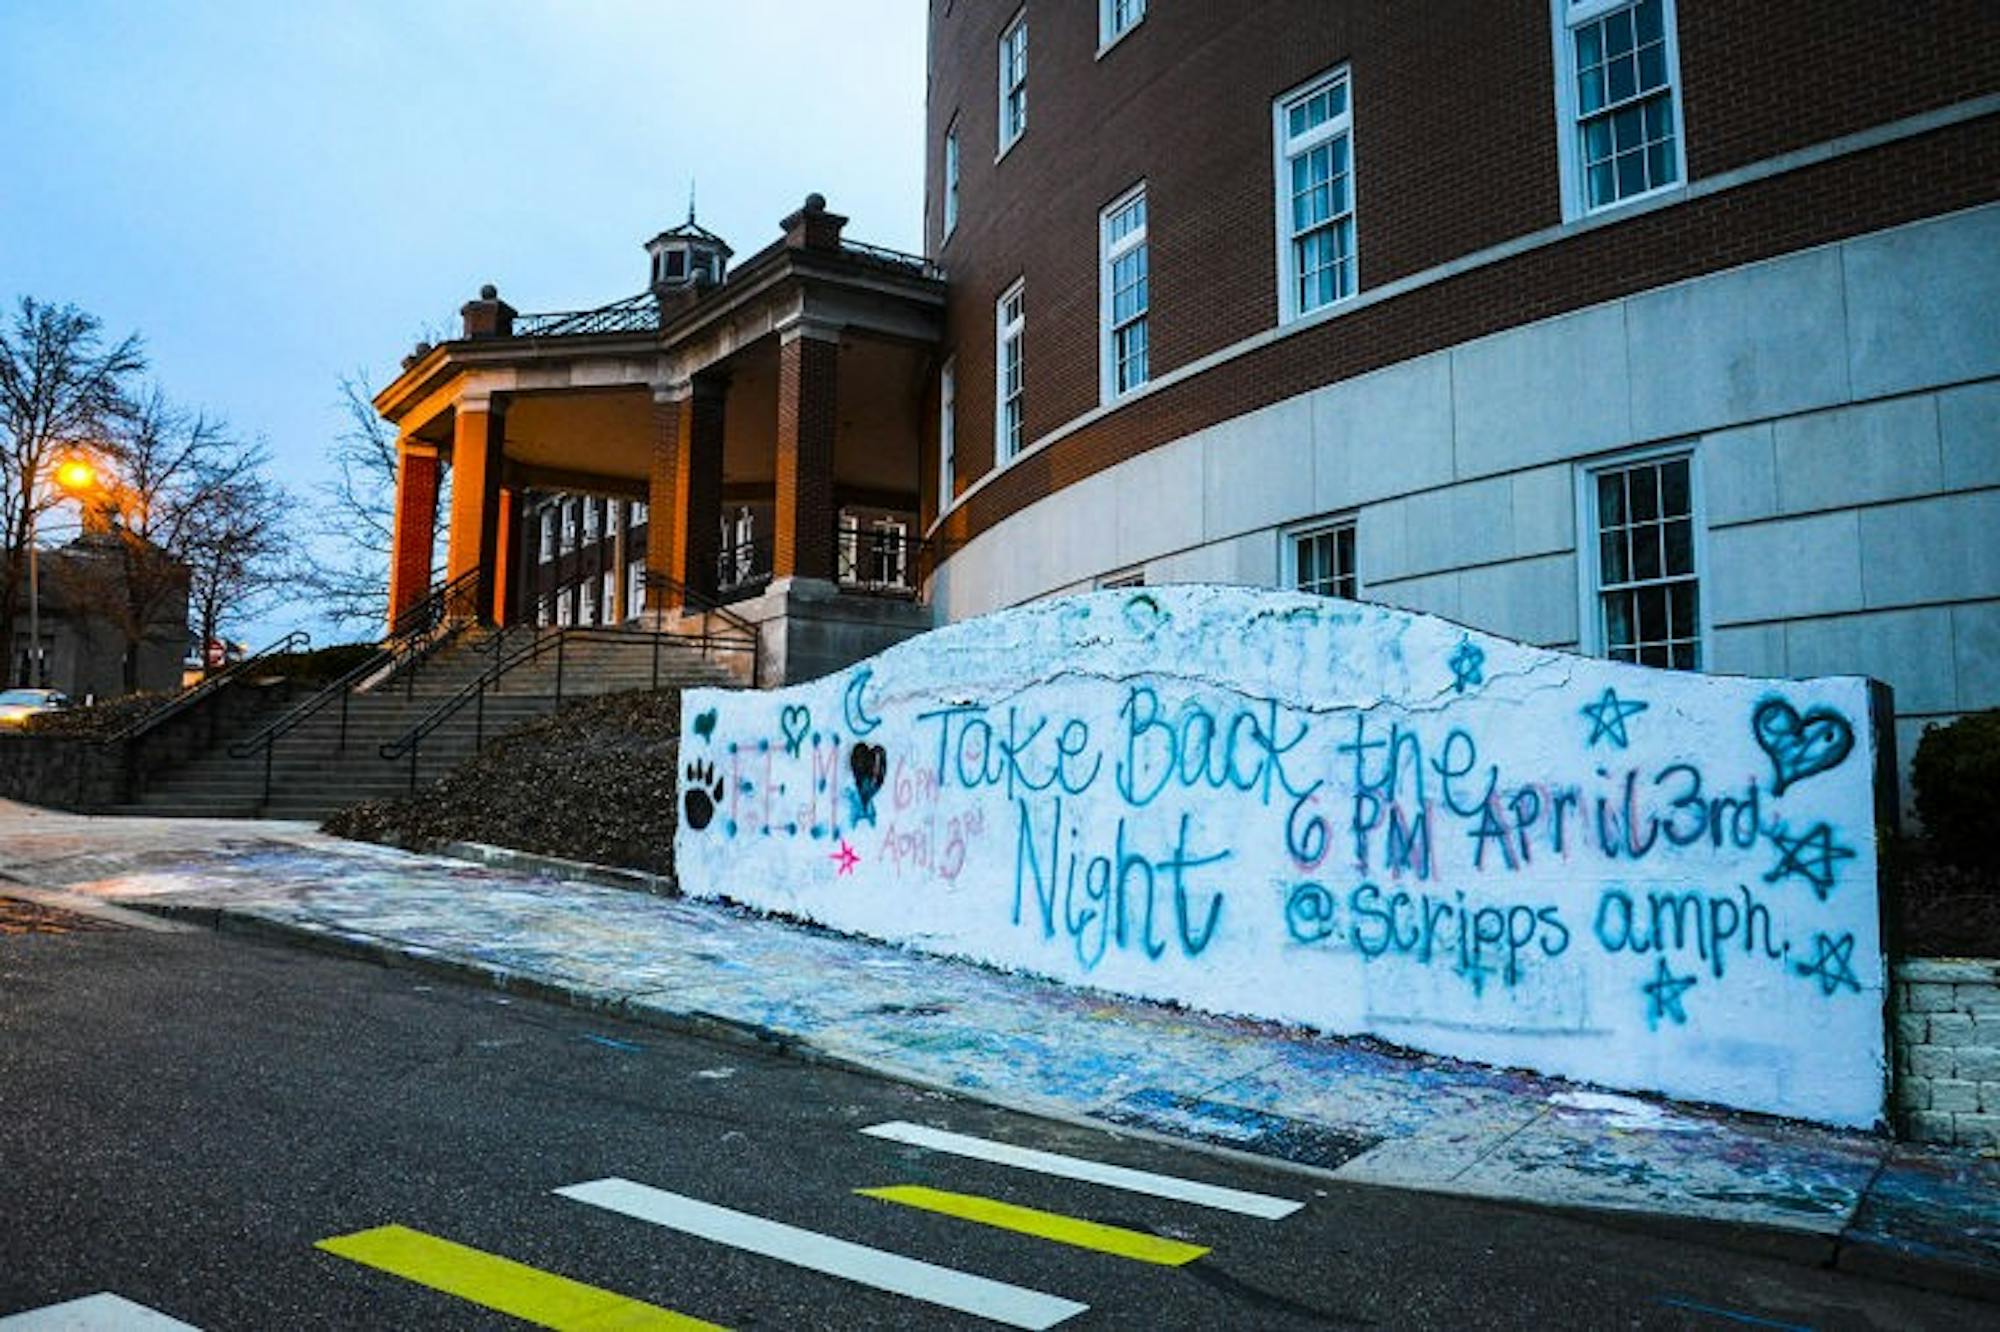 F.E.M
6PM
April 3rd
Take Back the
Night
6 PM April 3rd
@ Scripps amph.